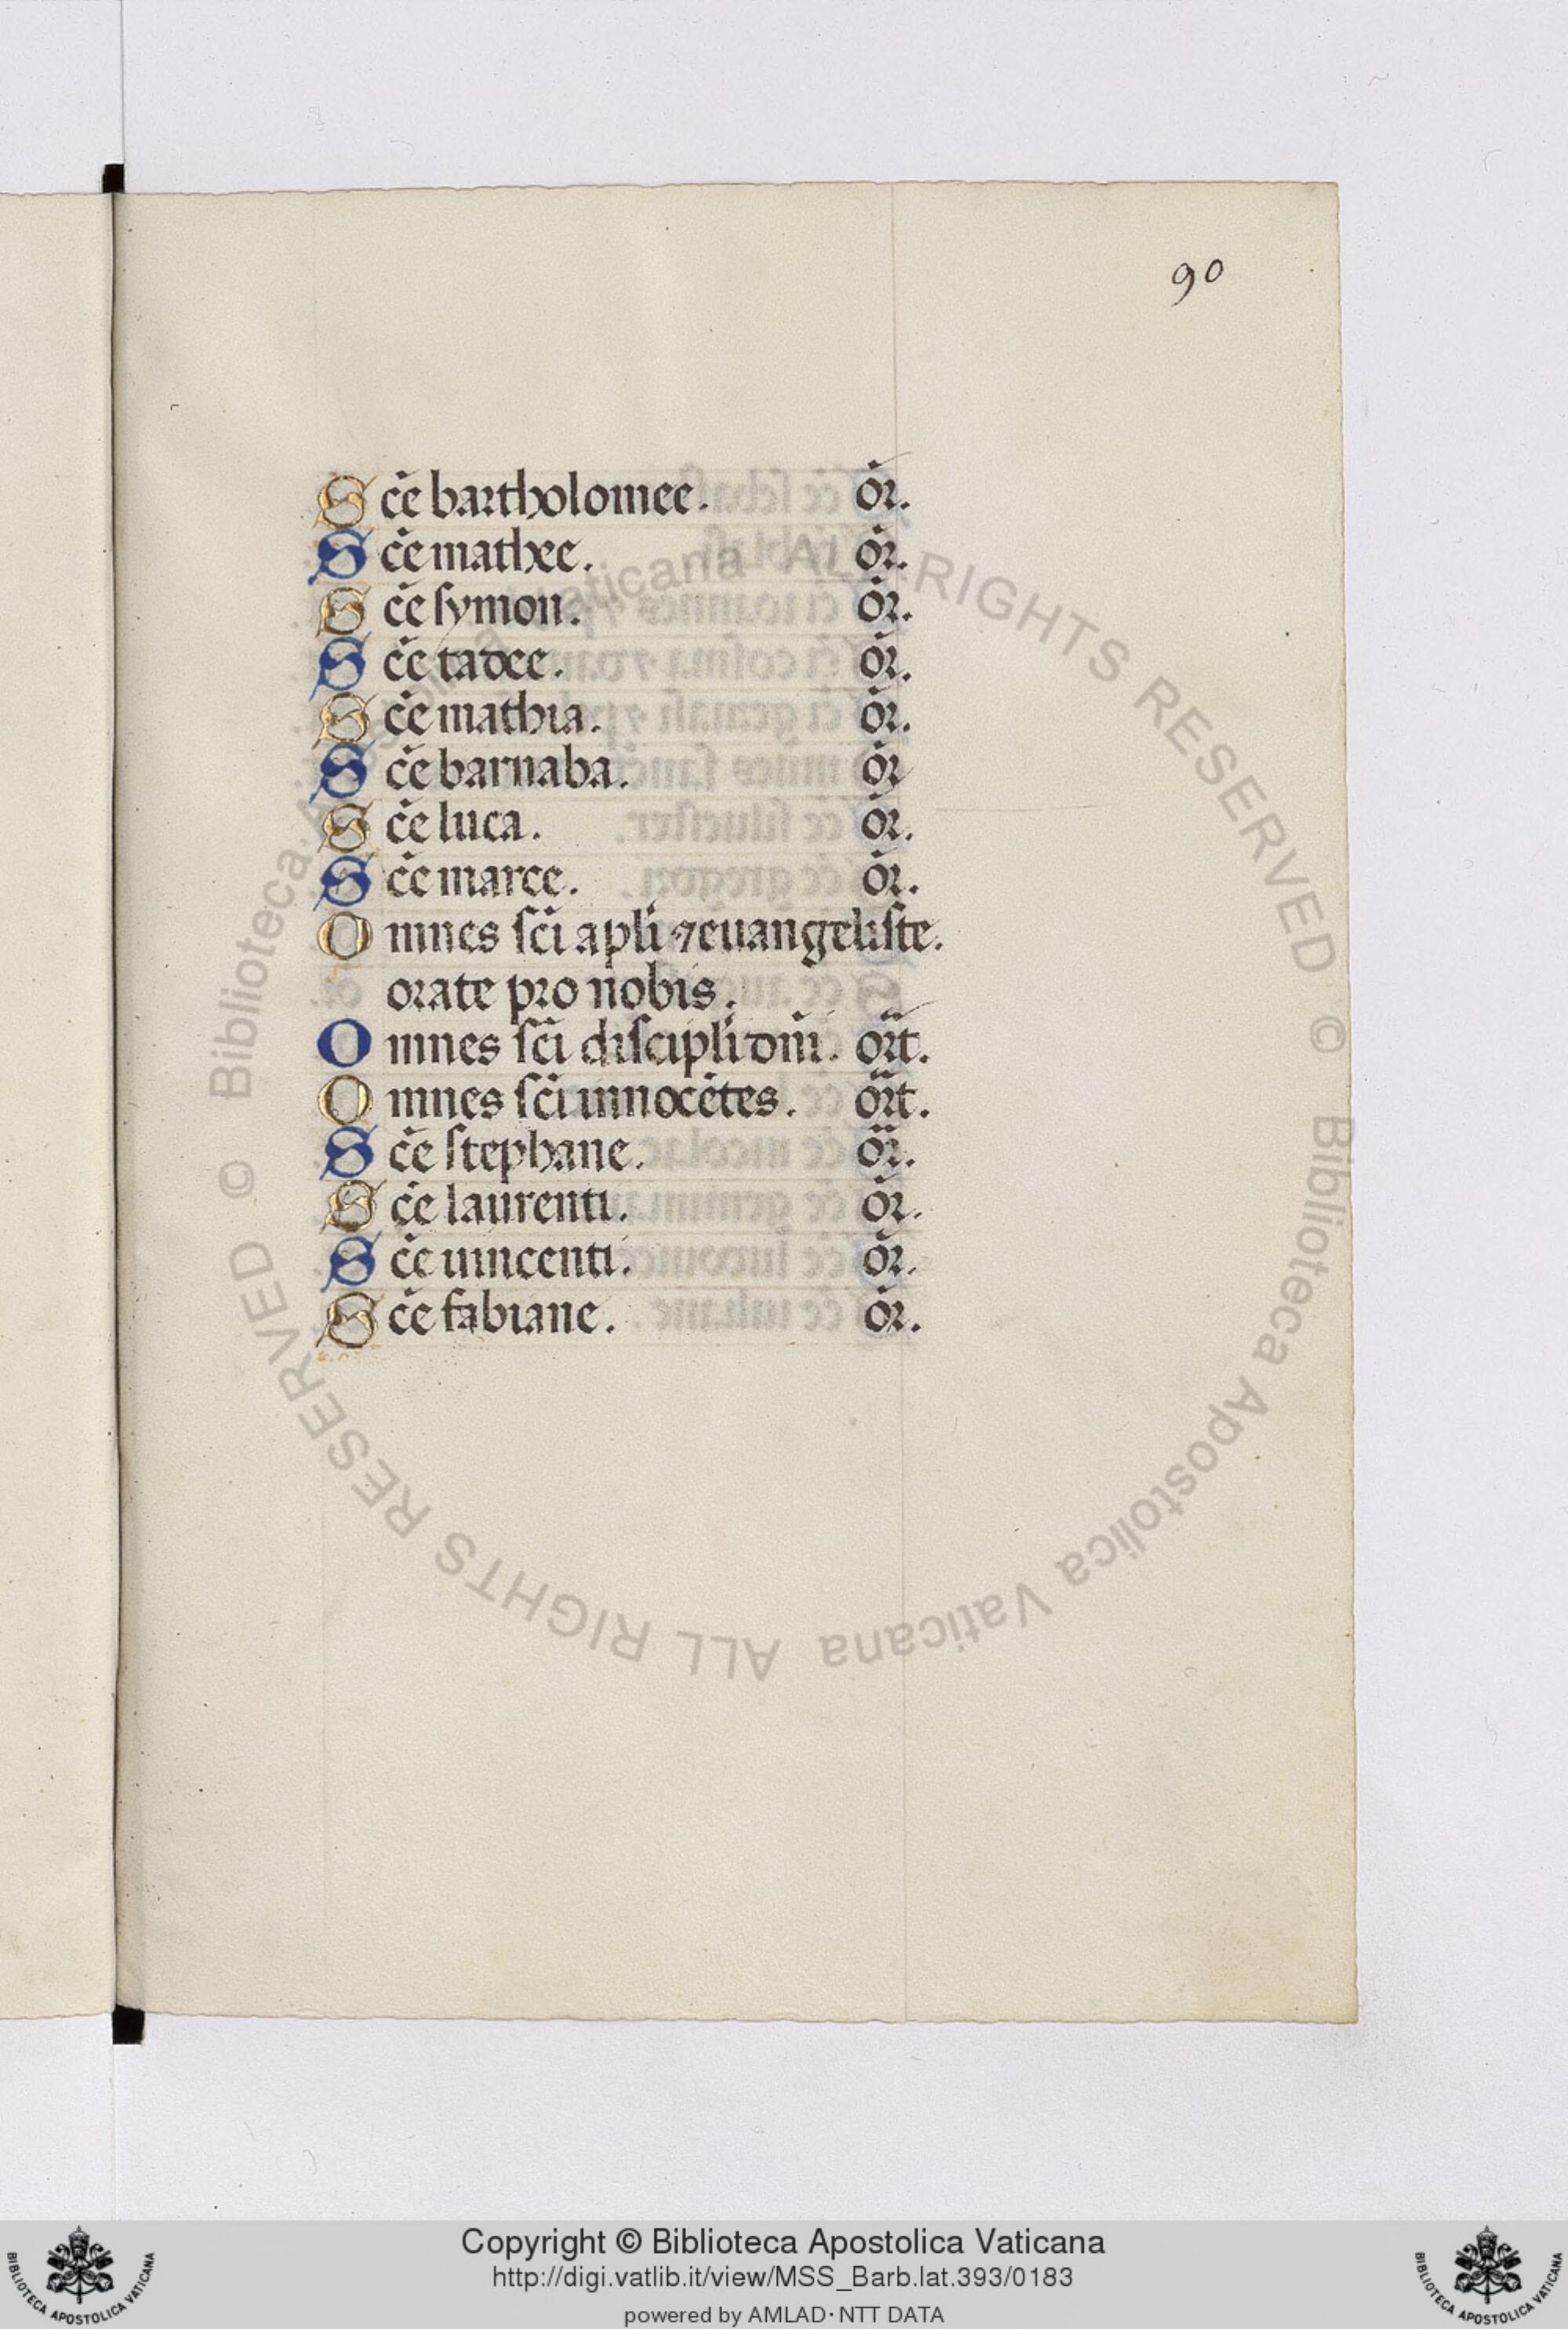 90
Sc̄e bartholomee. or̄.
Sc̄e mathee. or̄.
Sc̄e symon. or̄.
Sc̄e tadee. or̄.
Sc̄e mathia. or̄.
Sc̄e barnaba. or̄
Sc̄e luca. or̄.
Sc̄e marce. or̄.
Omnes sc̄i apl̄i ⁊ euangeliste.
orate pro nobis.
Omnes sc̄i discipl̄i dn̄i. or̄t.
Omnes sc̄i innocētes. or̄t.
Sc̄e stephane. or̄.
Sc̄e laurenti. or̄.
Sc̄e uincenti. or̄.
Sc̄e fabiane. or̄.
© Biblioteca Apostolica Vaticana ALL RIGHTS RESERVED © Biblioteca Apostolica Vaticana ALL RIGHTS RESERVED
Copyright © Biblioteca Apostolica Vaticana
http://digi.vatlib.it/view/MSS_Barb.lat.393/0183
powered by AMLAD·NTT DATA
BIBLIOTECA APOSTOLICA VATICANA
BIBLIOTECA APOSTOLICA VATICANA